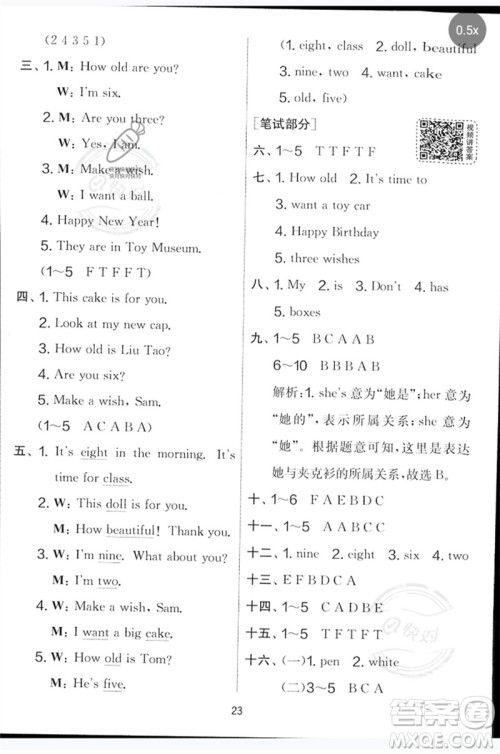 (2 4 3 5 1)
三、1. M: How old are you?
W: I'm six.
2. M: Are you three?
W: Yes, I am.
3. M: Make a wish.
W: I want a ball.
4. Happy New Year!
5. They are in Toy Museum.
(1～5 F T F F T)
四、1. This cake is for you.
2. Look at my new cap.
3. How old is Liu Tao?
4. Are you six?
5. Make a wish, Sam.
(1～5 A C A B A)
五、1. It's eight in the morning. It's
time for class.
2. W: This doll is for you.
M: How beautiful! Thank you.
3. M: I'm nine. What about you?
W: I'm two.
4. W: Make a wish, Sam.
M: I want a big cake.
5. W: How old is Tom?
M: He's five.
0.5x
(1. eight, class 2. doll, beautiful
3. nine, two 4. want, cake
5. old, five)
[笔试部分]
视频讲答案
六、1～5 T T F T F
七、1. How old 2. It's time to
3. want a toy car
4. Happy Birthday
5. three wishes
八、1. My 2. is 3. Don't 4. has
5. boxes
九、1～5 B C A A B
6～10 B B B A B
解析：1. she's意为“她是”；her意
为“她的”，表示所属关系；she意
为“她”。根据题意可知，这里强调
她与夹克衫的所属关系，故选B。
十、1～6 F A E B D C
十一、1～5 A A B C C
十二、1. nine 2. eight 3. six 4. two
十三、1～5 E B D C A
十四、1～5 C A D B E
十五、1～5 T F T F T
十六、(一)1. pen 2. white
(二)3～5 B C A
23
答案圈
MXQE.COM